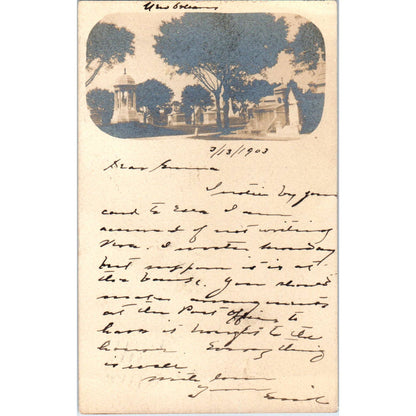 New Orleans
3/13/1903
Dear Emma
I notice by your
card to Essa I am
accused of not writing
you. I wrote Monday
but suppose is is at
the house. You should
make arrangements
at the Post Office to
have is brought to the
house. Everything
is well
with love
Yours
Emil